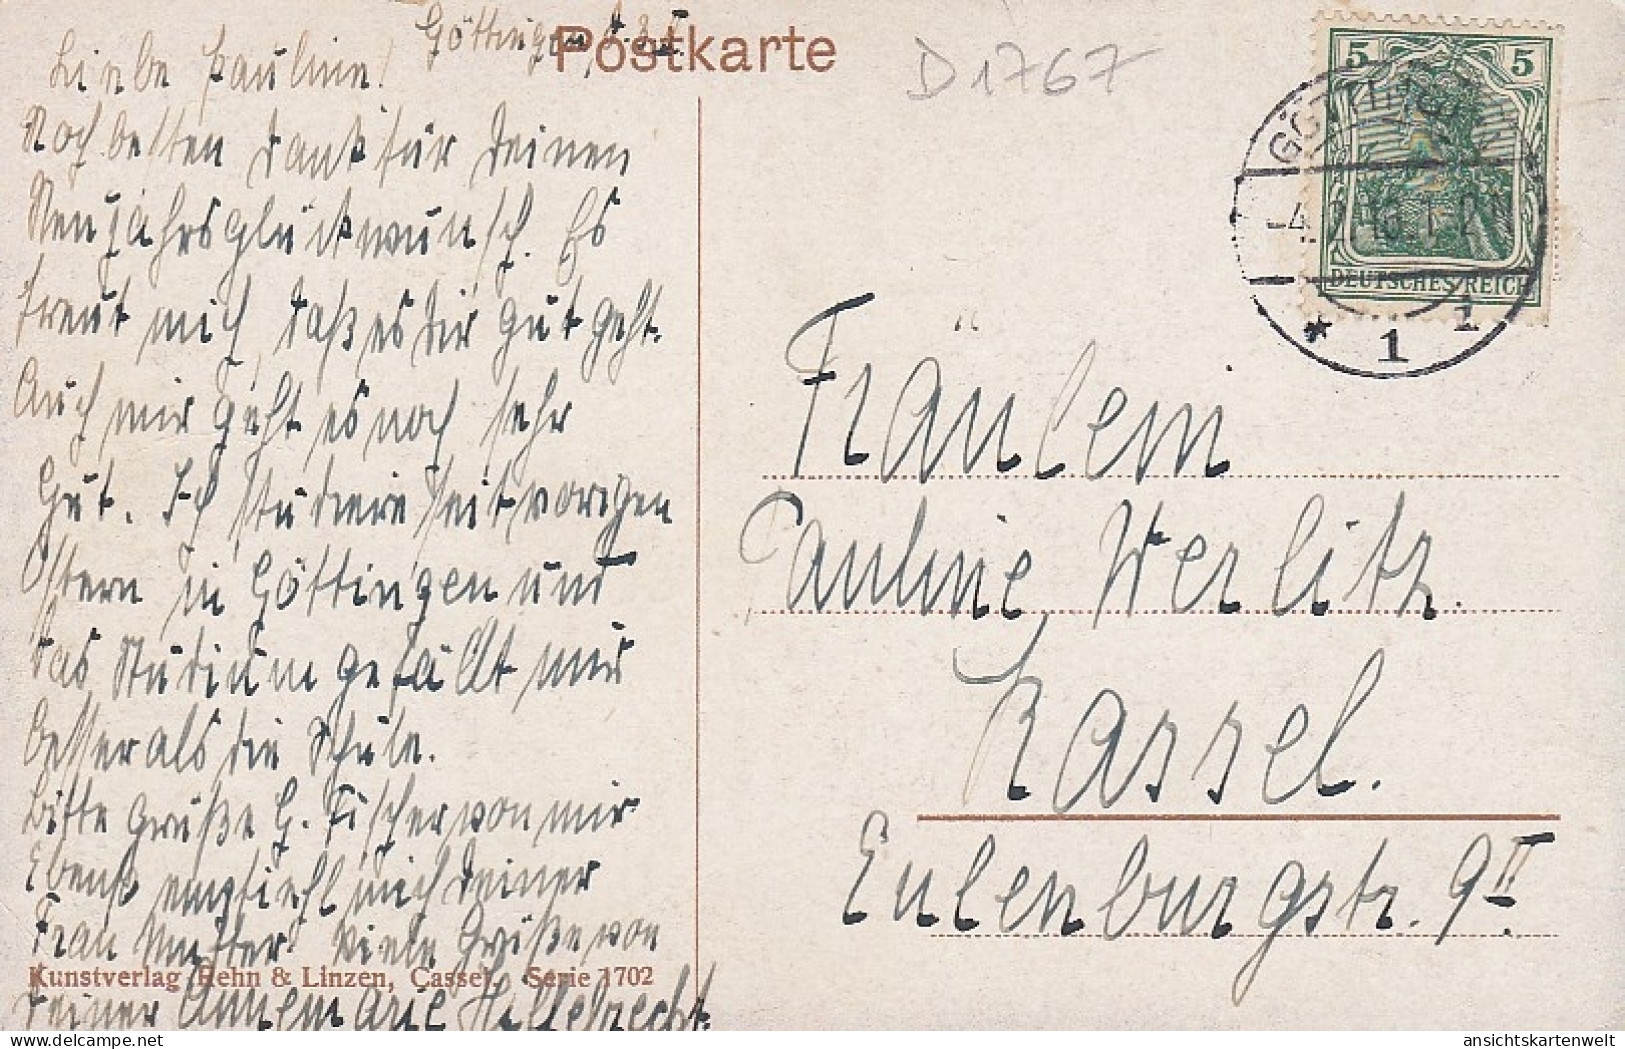 Göttingen, 4.2.
Postkarte
D 1767
Liebe Pauline!
Noch besten Dank für Deinen
Neujahrsglückwunsch. Es
freut mich, daß es Dir gut geht.
Auch mir geht es noch sehr
gut. Ich studiere seit vorigen
Ostern in Göttingen und
das Studium gefällt mir
besser als die Schule.
Bitte grüße H. Fischer von mir
Ebenso empfiehl mich Deiner
Frau Mutter. Viele Grüße von
Deiner Annemarie Hillebrecht.
Kunstverlag Rehn & Linzen, Cassel. Serie 1702
5 5
DEUTSCHES REICH
GÖTTINGEN
-4.2.16.1-2N
* 1 1
Fräulein
Pauline Werlitz.
Kassel.
Eulenburgstr. 9 II
ansichtskartenwelt.com
ansichtskartenwelt